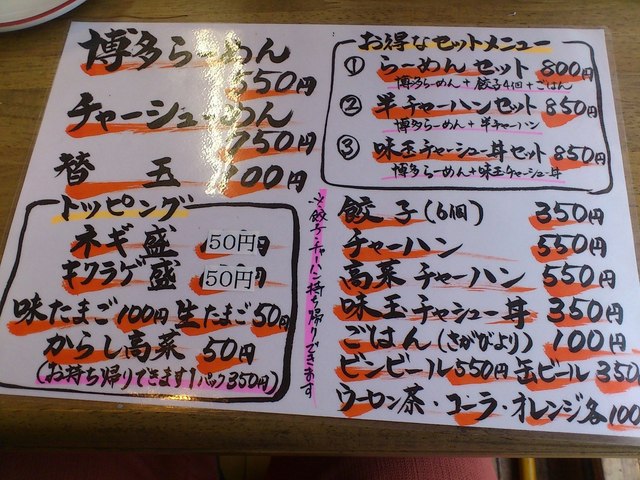 博多らーめん
550円
チャーシューめん
750円
替玉 100円
トッピング
ネギ盛 50円
キクラゲ盛 50円
味たまご100円 生たまご50円
からし高菜 50円
(お持ち帰りできます1パック350円)
餃子チャーハン持ち帰りできます
お得なセットメニュー
① らーめんセット 800円
博多らーめん+餃子4個+ごはん
② 半チャーハンセット 850円
博多らーめん+半チャーハン
③ 味玉チャーシュー丼セット 850円
博多らーめん+味玉チャーシュー丼
餃子(6個) 350円
チャーハン 550円
高菜チャーハン 550円
味玉チャシュー丼 350円
ごはん(さがびより) 100円
ビンビール550円 缶ビール350
ウーロン茶・コーラ・オレンジ各100